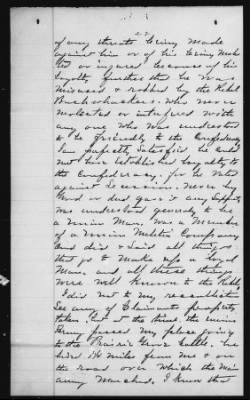 22
of any threats being made
against him or of his being molested
or injured because of his
loyalty, further that he was
misused & robbed by the Rebel
Bushwhackers. Who never
molested or interfered with
any one who was understood
to be friendly to the Confederacy
I am perfectly satisfied he could
not have established his loyalty to
the Confederacy. for he voted
against Secession. never by
word or deed gave it any support
was understood generally to be
a Union Man, was a member
of a Union Militia Company
And did & said all things
that go to make up a loyal
Man. and all these things
were well known to the Public
I did not to my recollection
See any of Claimants property
taken, but at the time the Union
Army passed my place going
to the Prairie Grove battle. he
lived 1¼ miles from me & on
the road over which the Union
army marched. I know that